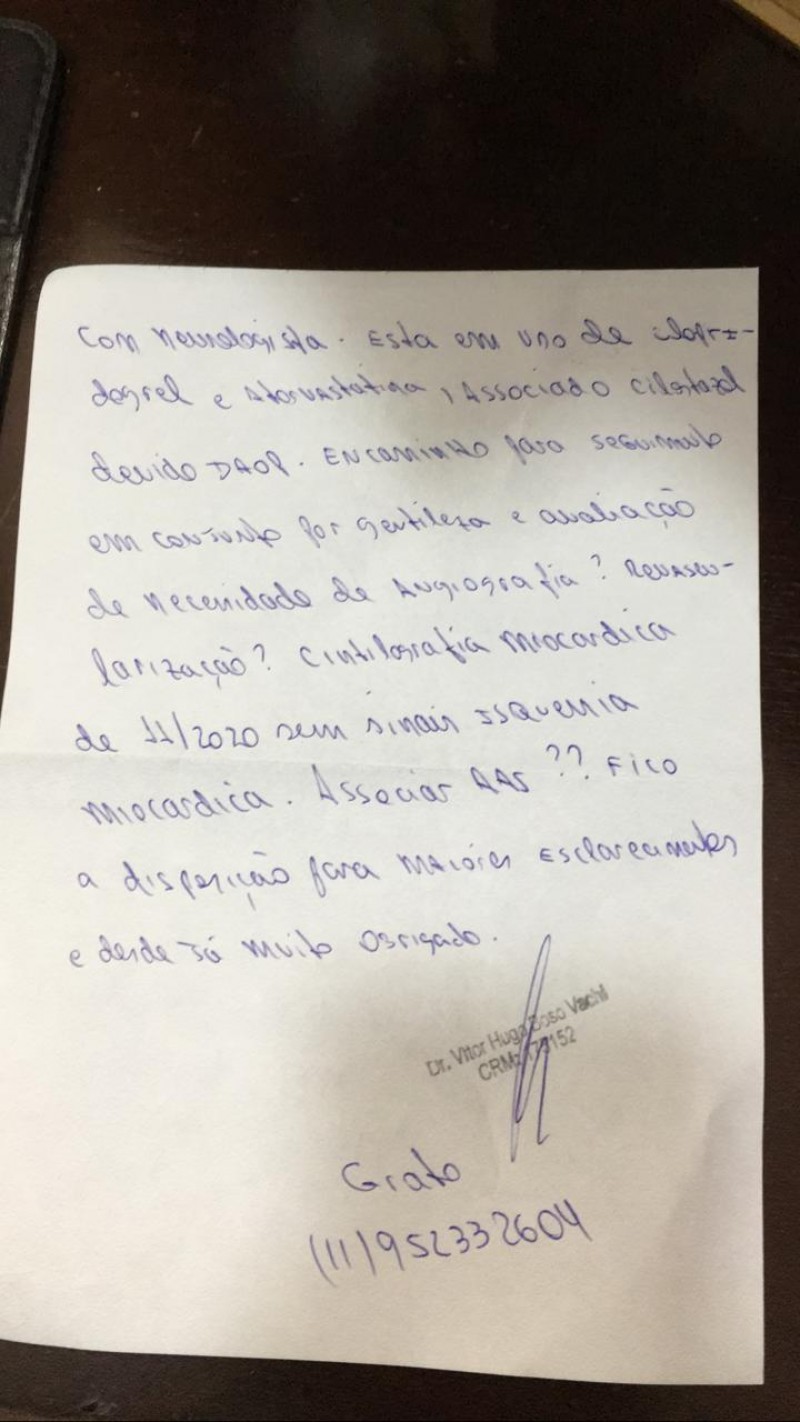 Com neurologista. Esta em uso de clopi-
dogrel e Atorvastatina, Associado cilostazol
devido DAOP. Encaminho para seguimento
em conjunto por gentileza e avaliação
de necessidade de Angiografia? Revascu-
larização? Cintilografia miocardica
de 11/2020 sem sinais Isquemia
miocardica. Associar AAS ?? Fico
a disposição para maiores Esclarecimentos
e desde já muito obrigado.
Dr. Vitor Hugo Boso Vachi
CRM:
Grato
(11)952332604